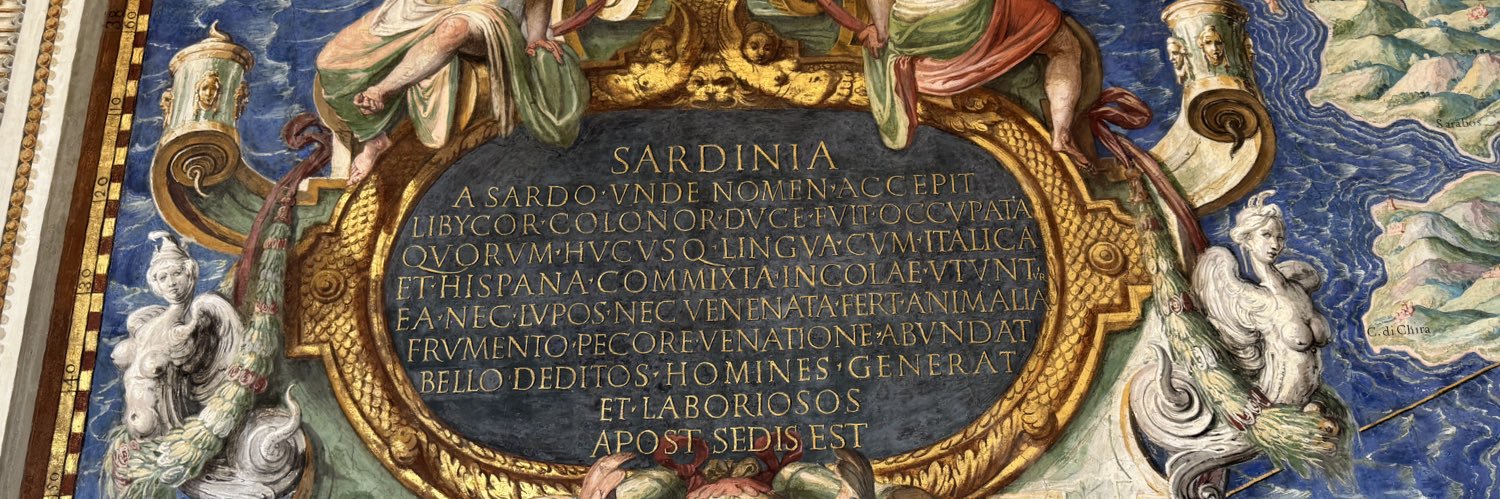 SARDINIA
A SARDO·VNDE NOMEN·ACCEPIT
LIBYCOR·COLONOR·DVCE·FVIT·OCCVPATA
QVORVM·HVCVSQ·LINGVA·CVM·ITALICA
ET·HISPANA·COMMIXTA·INCOLAE·VTVNTVR
EA·NEC·LVPOS·NEC VENENATA·FERT·ANIMALIA
FRVMENTO·PECORE VENATIONE·ABVNDAT
BELLO·DEDITOS·HOMINES·GENERAT
ET·LABORIOSOS
APOST SEDIS EST
Sarabos
C. di Chira
160
110
120
130
140